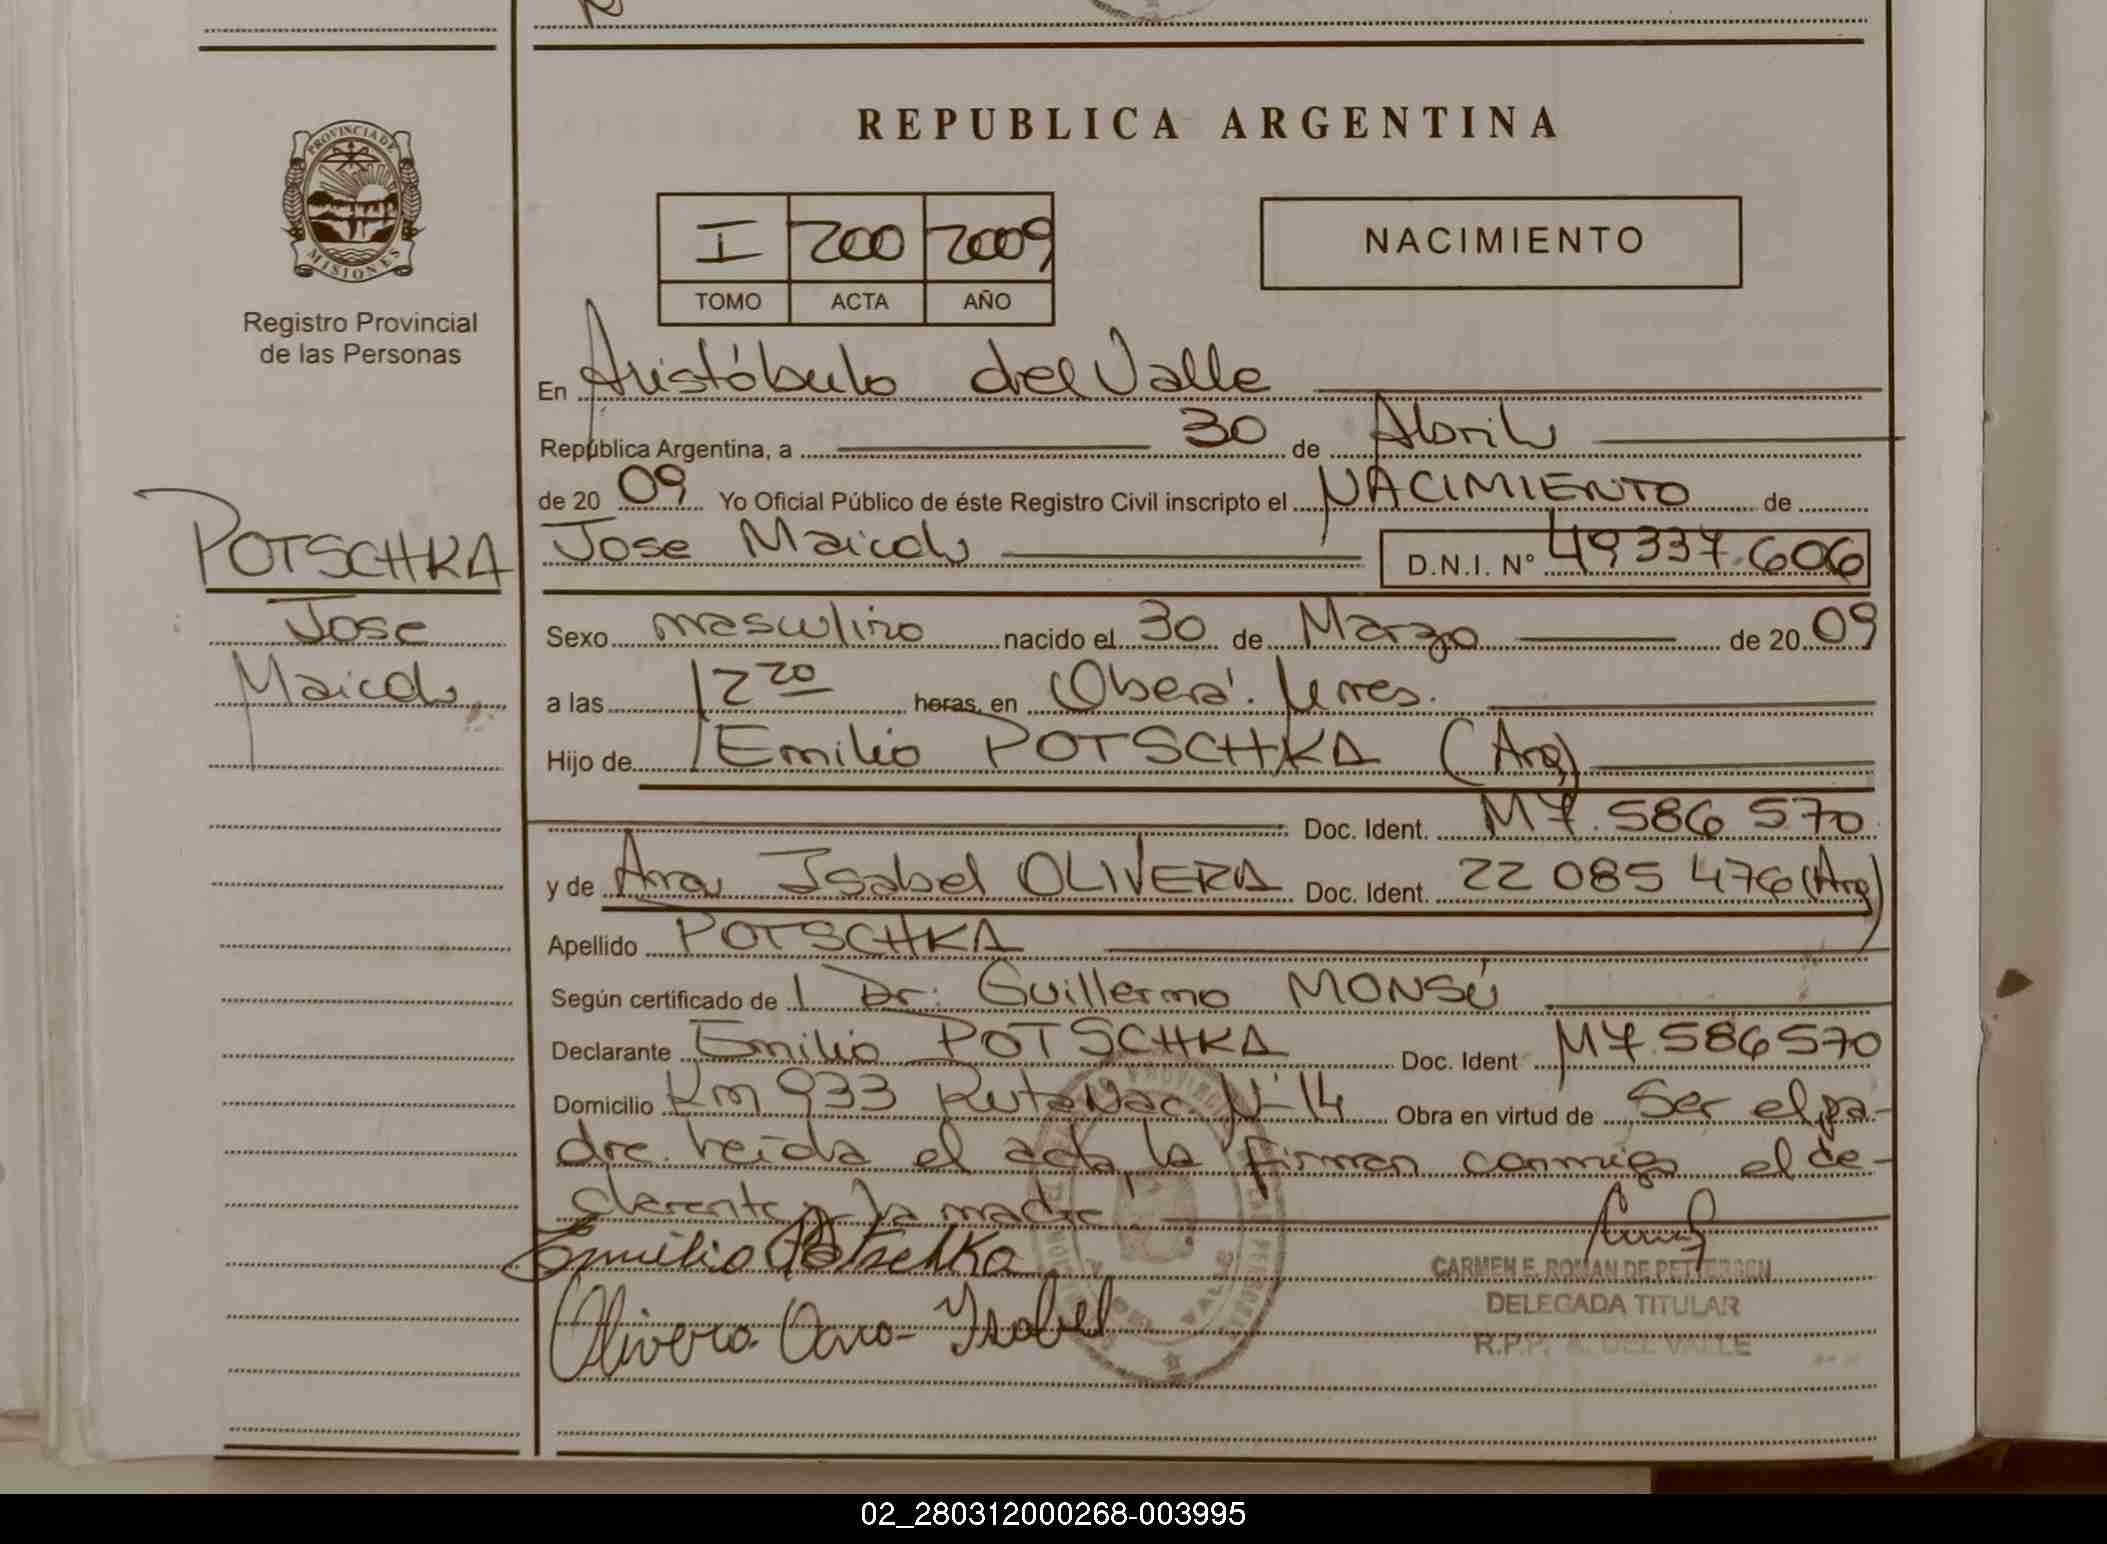 REPUBLICA ARGENTINA
PROVINCIA DE
MISIONES
Registro Provincial
de las Personas
I 200 2009
TOMO ACTA AÑO
NACIMIENTO
En Aristóbulo del Valle
República Argentina, a 30 de Abril
de 20 09 Yo Oficial Público de éste Registro Civil inscripto el NACIMIENTO de
POTSCHKA
Jose
Maicol
Jose Maicol D.N.I. N° 49337.606
Sexo masculino nacido el 30 de Marzo de 20 09
a las 12 20 horas, en Oberá.
Hijo de Emilio POTSCHKA (Arg)
Doc. Ident. M7.586 570
y de Ana Isabel OLIVERA Doc. Ident. 22 085 476 (Arg)
Apellido POTSCHKA
Según certificado de Dr. Guillermo MONSÚ
Declarante Emilio POTSCHKA Doc. Ident M7.586570
Domicilio Km 933 Ruta Nac. N° 14 Obra en virtud de Ser el pa-
dre. leída el acta, la firman conmigo el de-
clarante y la madre
Emilio Potschka
Olivera Ana Isabel
CARMEN E. ROMAN DE PETTERSEN
DELEGADA TITULAR
R.P.P. A. DEL VALLE
02_280312000268-003995